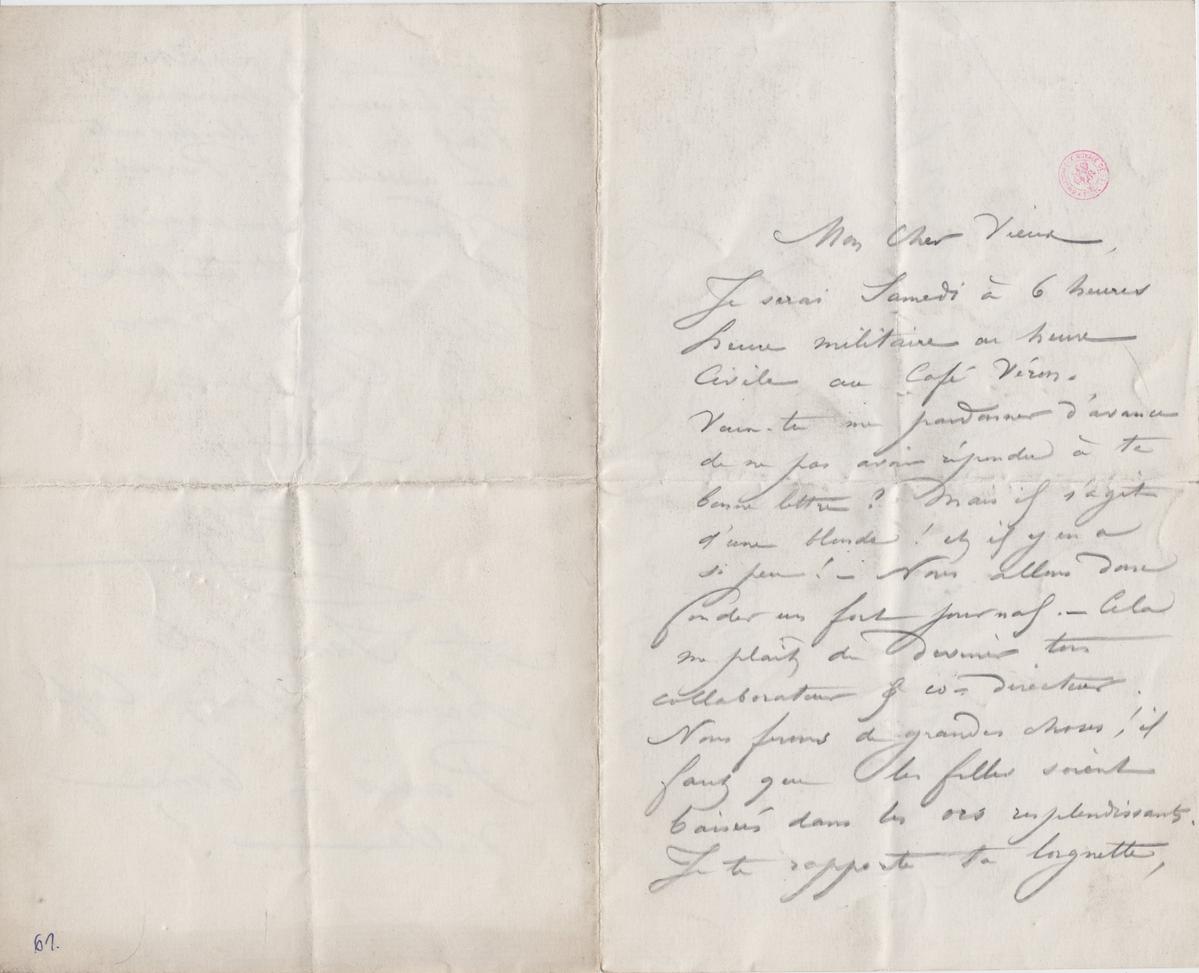 Mon Cher Vieux,
Je serai Samedi à 6 heures
heure militaire ou heure
Civile au Café Véron.
Veux-tu me pardonner d'avance
de ne pas avoir répondu à ta
bonne lettre ? Mais il s'agit
d'une blonde ! et il y en a
si peu ! – Nous allons donc
fonder un fort journal. – Cela
me plait de devenir ton
collaborateur & co-directeur.
Nous ferons de grandes choses ! il
faut que les filles soient
baisées dans les ors resplendissants.
Je te rapporte ta lorgnette,
61.